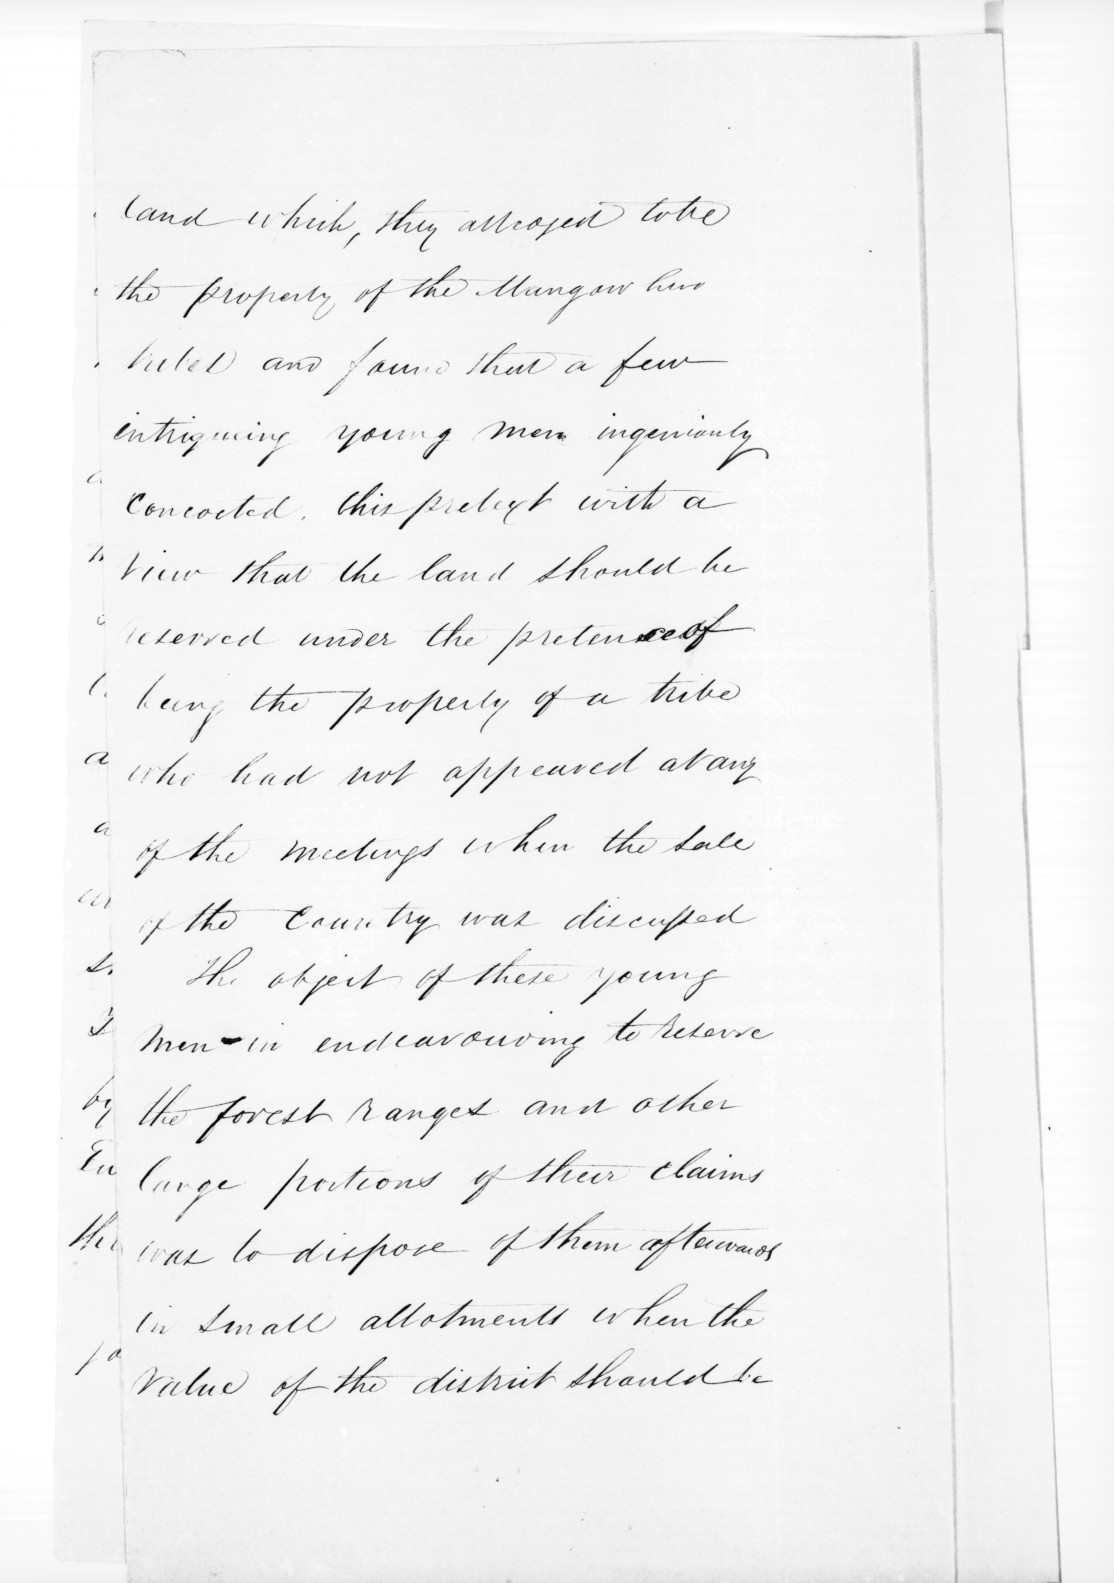 land which, they alleged to be
the property of the Mangawhai
tribes and found that a few
intrigueing young men ingeniously
concocted. this pretext with a
view that the land should be
reserved under the pretence of
being the property of a tribe
who had not appeared at any
of the meetings when the sale
of the Country was discussed
The object of these young
Men in endeavouring to reserve
the forest ranges and other
large portions of their claims
was to dispose of them afterwards
in small allotments when the
value of the district should be